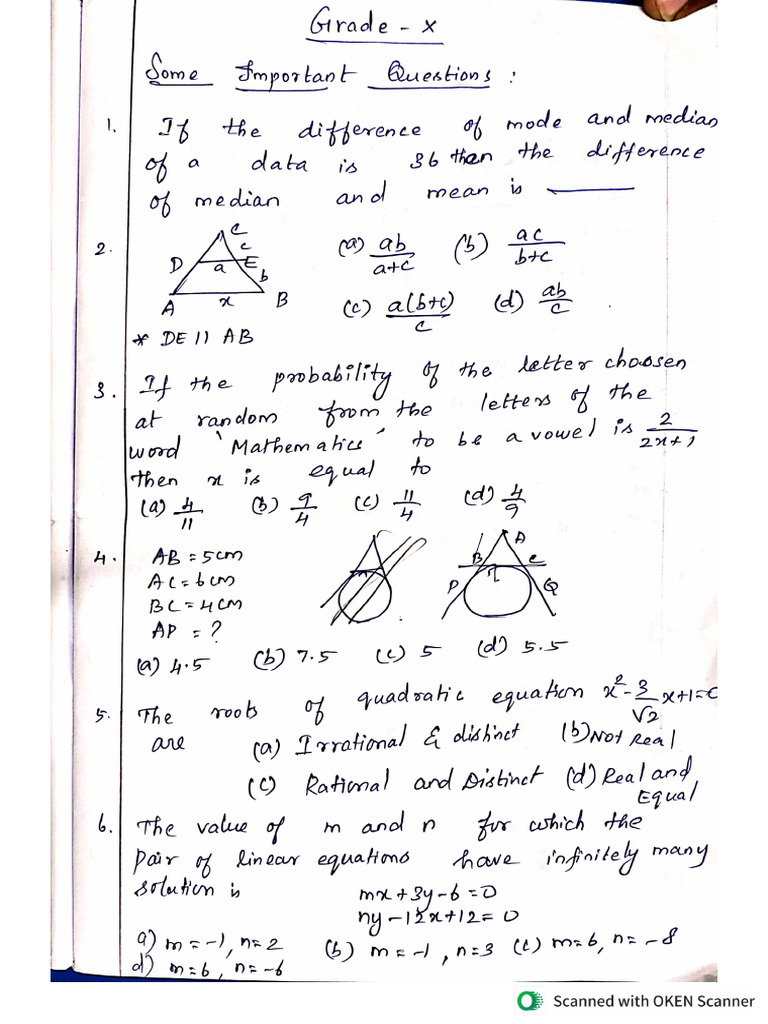 Grade - X
Some Important Questions :
1. If the difference of mode and median
of a data is 36 then the difference
of median and mean is ______
2. C c D a E b A x B (a) ab/a+c (b) ac/b+c
(c) a(b+c)/c (d) ab/c .
* DE || AB
3. If the probability of the letter choosen
at random from the letters of the
word 'Mathematics' to be a vowel is 2/2x+1
then x is equal to
(a) 4/11 (b) 9/4 (c) 11/4 (d) 4/9
4. AB = 5cm
AC = 6cm
BC = 4cm
AP = ?
A B C P Q
(a) 4.5 (b) 7.5 (c) 5 (d) 5.5
5. The roots of quadratic equation x²-3/√2 x+1=0
are (a) Irrational & distinct (b) Not Real
(c) Rational and Distinct (d) Real and
Equal
6. The value of m and n for which the
pair of linear equations have infinitely many
solution is
mx+3y-6=0
ny-12x+12=0
a) m=-1, n=2 (b) m=-1, n=3 (c) m=6, n=-8
d) m=6, n=-6
Scanned with OKEN Scanner